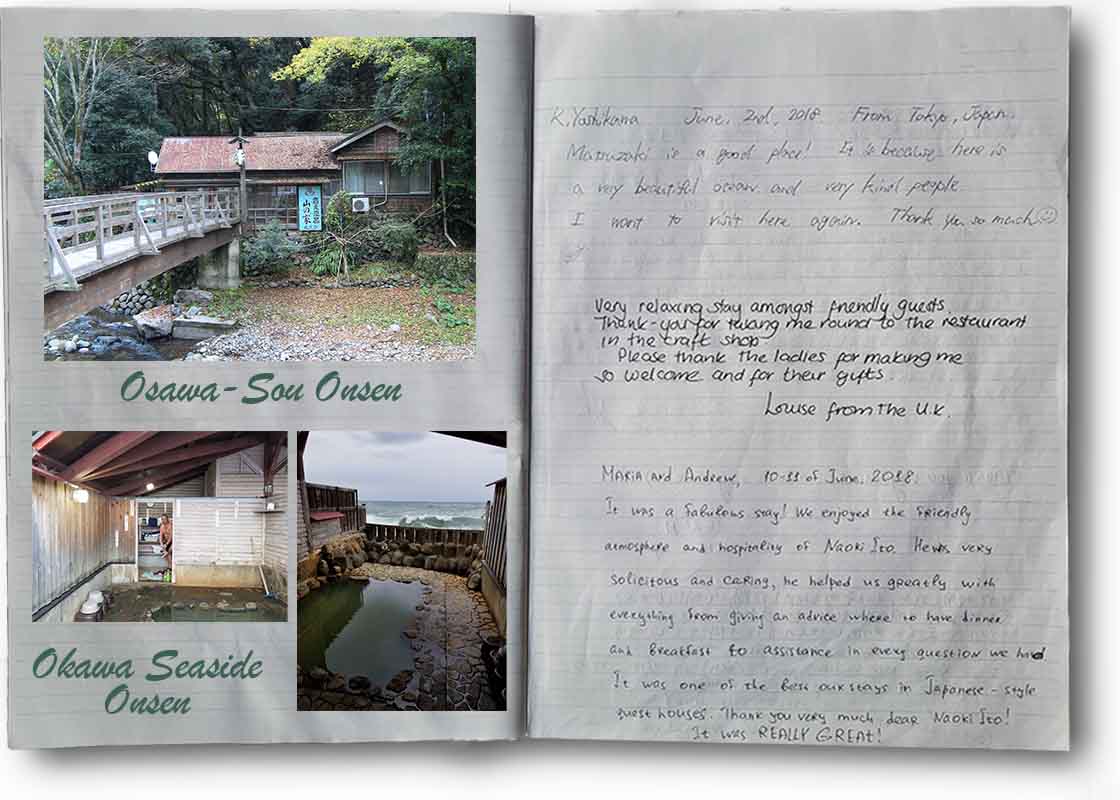 山の家
Osawa-Sou Onsen
Okawa Seaside
Onsen
K. Yoshikawa June, 2nd, 2018 From Tokyo, Japan.
Matsuzaki is a good place! It is because here is
a very beautiful ocean and very kind people
I want to visit here again. Thank you so much
Very relaxing stay amongst friendly guests
Thank-you for taking me round to the restaurant
in the craft shop
Please thank the ladies for making me
so welcome and for their gifts.
Louise from the U.K.
Maria and Andrew, 10-11 of June, 2018.
It was a fabulous stay! We enjoyed the friendly
atmosphere and hospitality of Naoki Ito. He was very
solicitous and caring, he helped us greatly with
everything from giving an advice where to have dinner
and breakfast to assistance in every question we had
It was one of the best our stays in Japanese-style
guest houses. Thank you very much dear Naoki Ito!
It was REALLY GREAT!